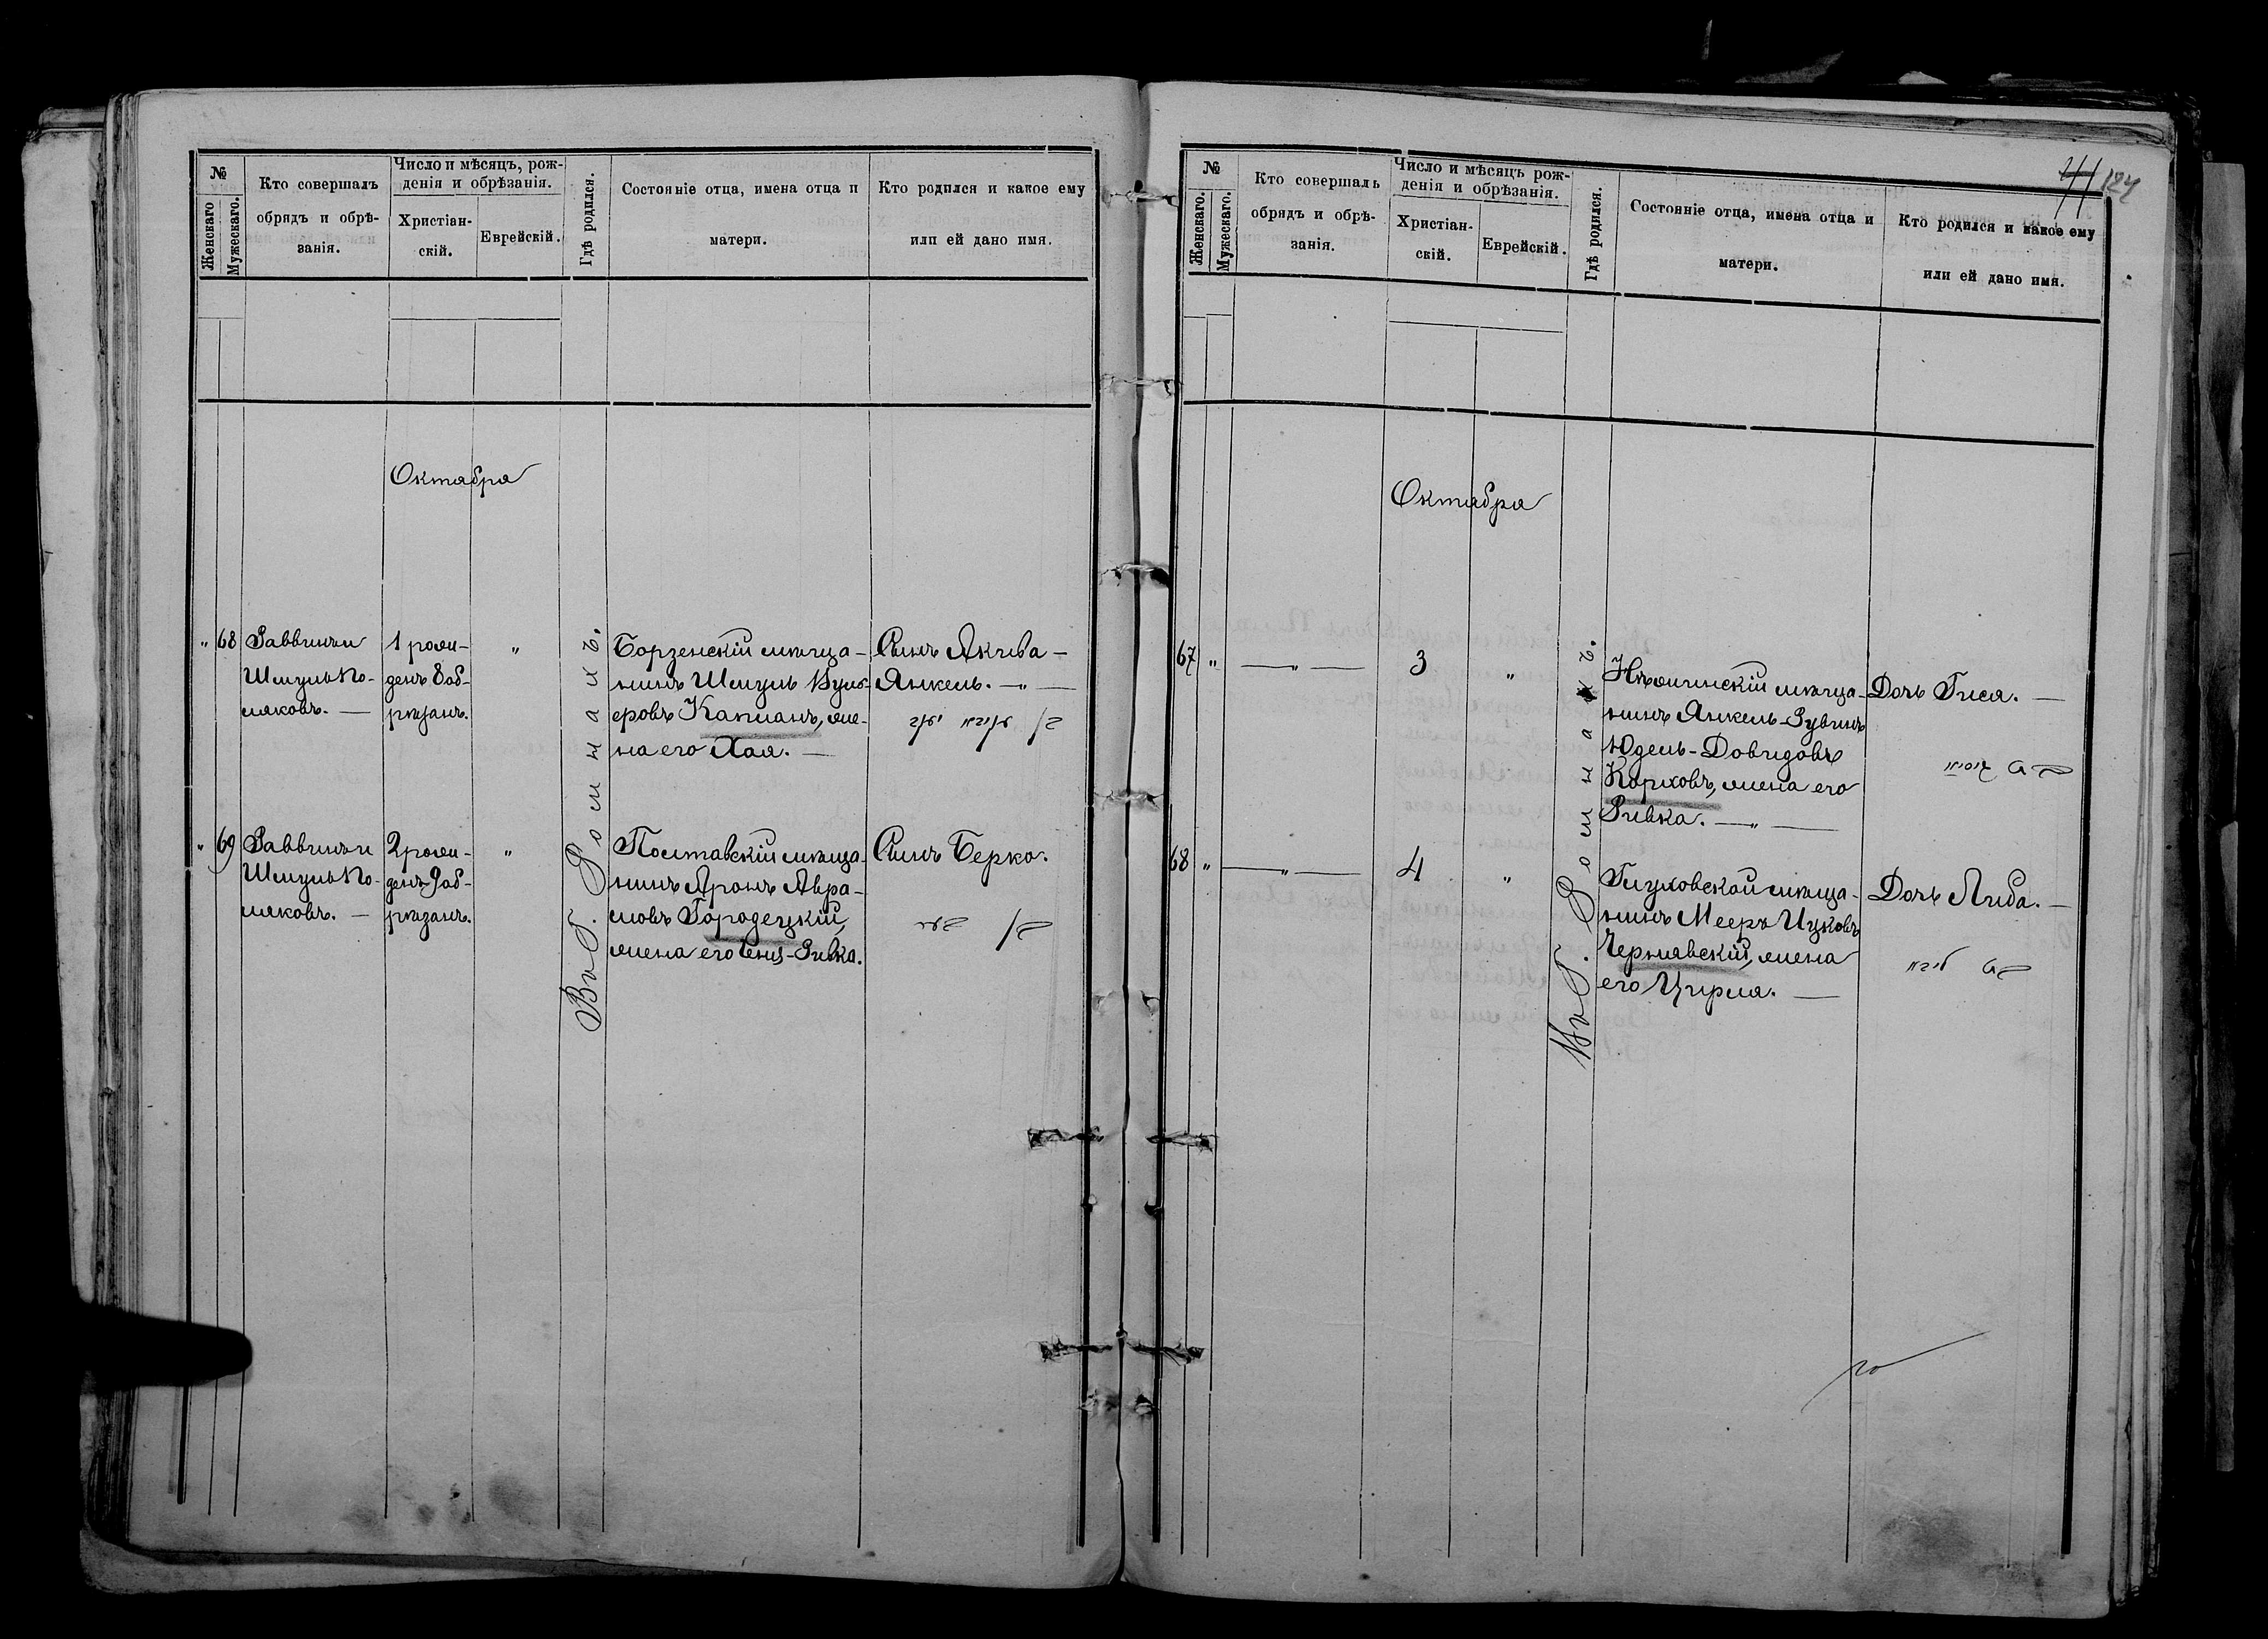 №
Женскаго
Мужескаго.
Кто совершалъ
обрядъ и обрѣ-
занія.
Число и мѣсяцъ, рож-
денія и обрѣзанія.
Христіан-
скій.
Еврейскій.
Гдѣ родился.
Состояніе отца, имена отца и
матери.
Кто родился и какое ему
или ей дано имя.
Октября
" 68
Раввинъ
Шмуль По-
ляковъ. —
1 рож-
денъ 8 об-
рѣзанъ.
"
Борзенскій мѣща-
нинъ Шмуль Вуль-
Капланъ, же-
на его Хая. —
Сынъ Акива-
Янкель. — " —
" 69
Раввинъ
Шмуль По-
ляковъ. —
2 рож-
денъ 9 об-
рѣзанъ.
"
Полтавскій мѣща-
нинъ Аронъ Авра-
мовъ Городецкій,
жена его -Ривка.
Сынъ Берко.
Въ Г. Ромнахъ.
124
№
Женскаго.
Мужескаго.
Кто совершалъ
обрядъ и обрѣ-
занія.
Число и мѣсяцъ рож-
денія и обрѣзанія.
Христіан-
скій.
Еврейскій.
Гдѣ родился.
Состояніе отца, имена отца и
матери.
Кто родился и какое ему
или ей дано имя.
Октября
67 "
— " —
3
"
Нѣжинскій мѣща-
нинъ Янкель-Рувинъ
Юдель-Довидовъ
Карховъ, жена его
Ривка. — " —
Дочь Гися. —
68 "
— " —
4
"
Глуховской мѣща-
нинъ Мееръ Ицковъ
Чернявскій, жена
его Цирля. —
Дочь Либа. —
Въ Г. Ромнахъ.